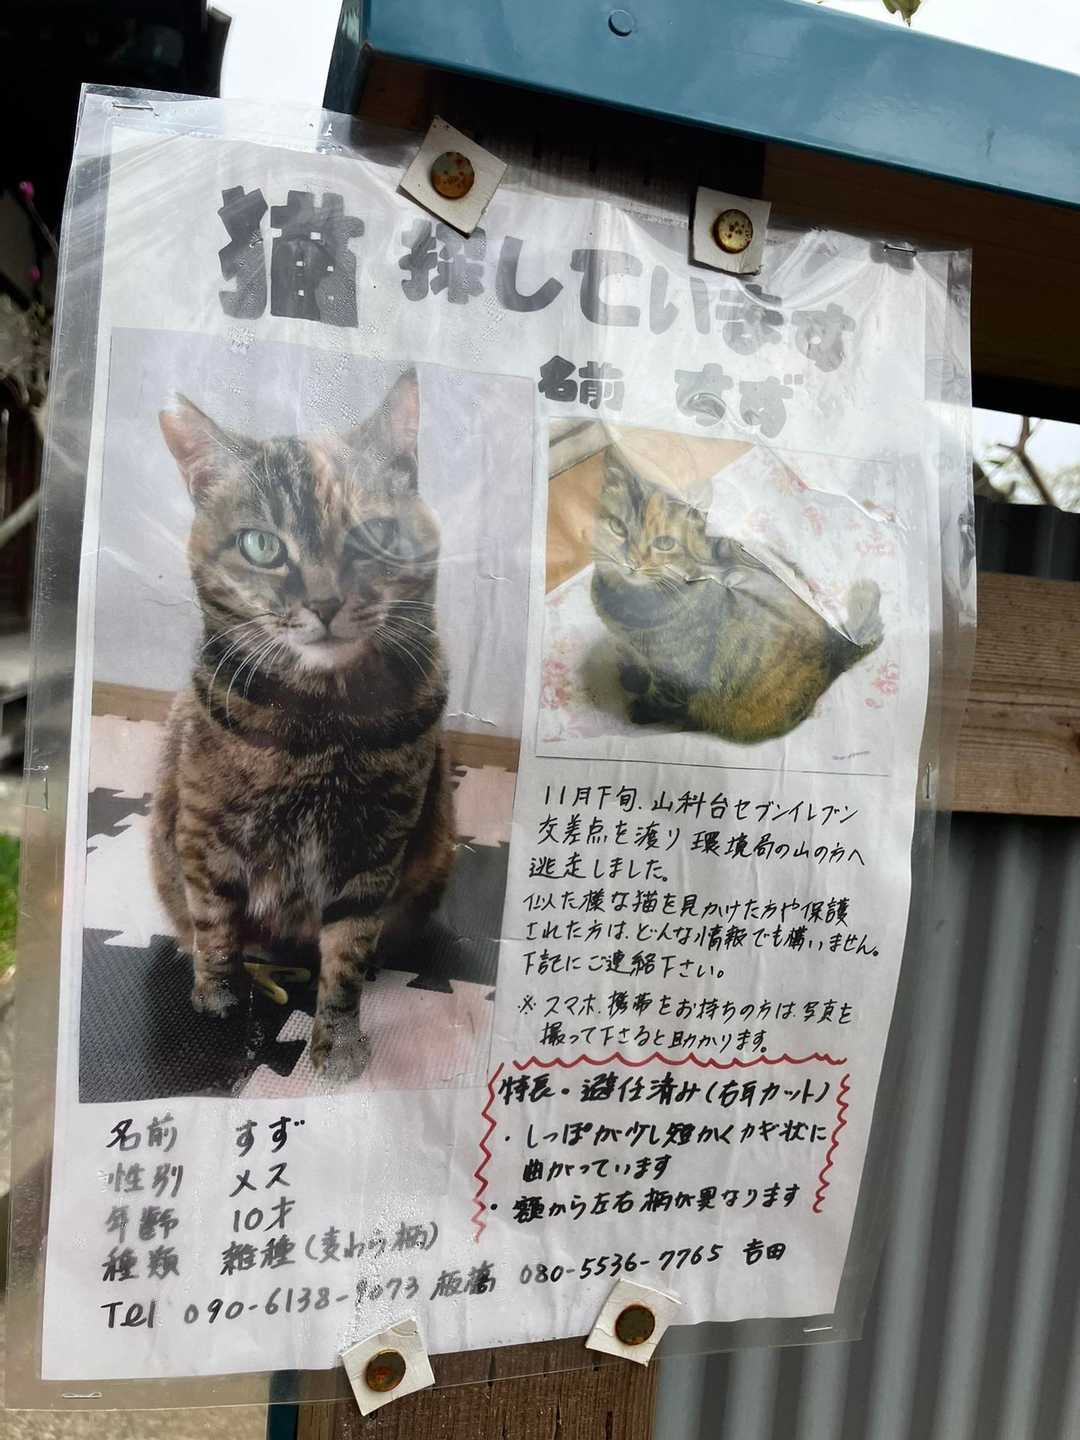 猫 探しています
名前 すず
11月下旬、山科台セブンイレブン
交差点を渡り 環境局の山の方へ
逃走しました。
似た様な猫を見かけた方や保護
された方は、どんな情報でも構いません。
下記にご連絡下さい。
※ スマホ、携帯をお持ちの方は、写真を
撮って下さると助かります。
特長・避任済み(右耳カット)
・しっぽが少し短かくカギ状に
曲がっています
・額から左右柄が異なります
名前 すず
性別 メス
年齢 10才
種類 雑種(変わり柄)
Tel 090-6138-9073 板橋 080-5536-7765 吉田